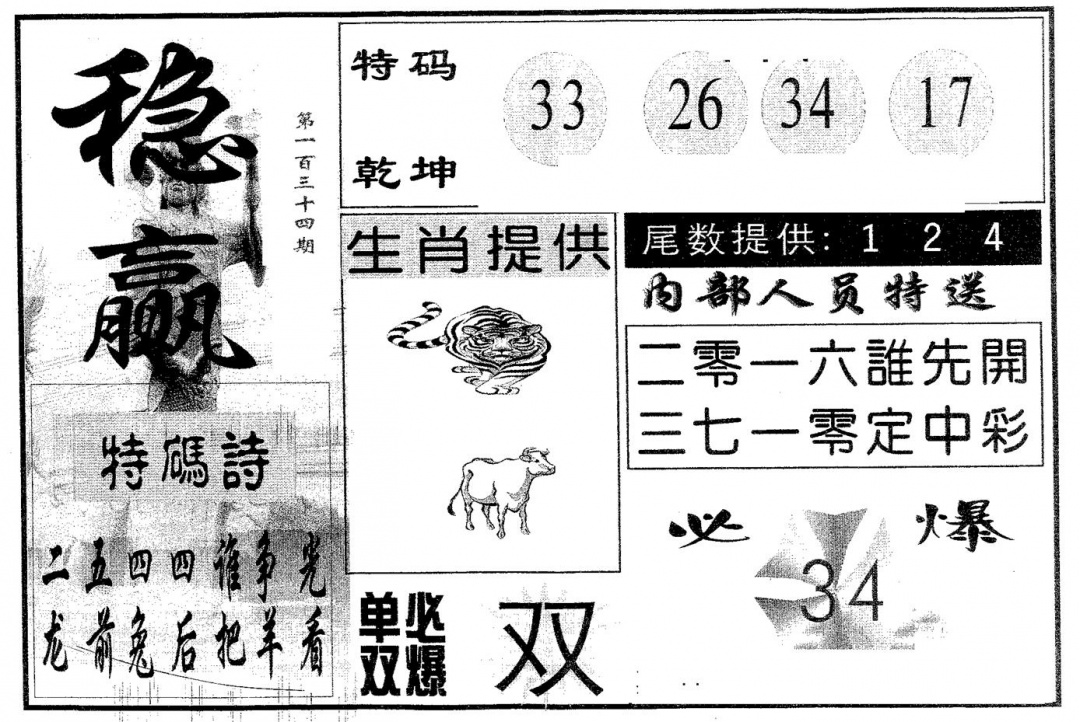 稳赢
第一百三十四期
特码
乾坤
33 26 34 17
生肖提供
尾数提供: 1 2 4
内部人员特送
二零一六誰先開
三七一零定中彩
特碼詩
二五四四谁争光
龙前兔后把羊看
必爆
34
单双
必爆
双